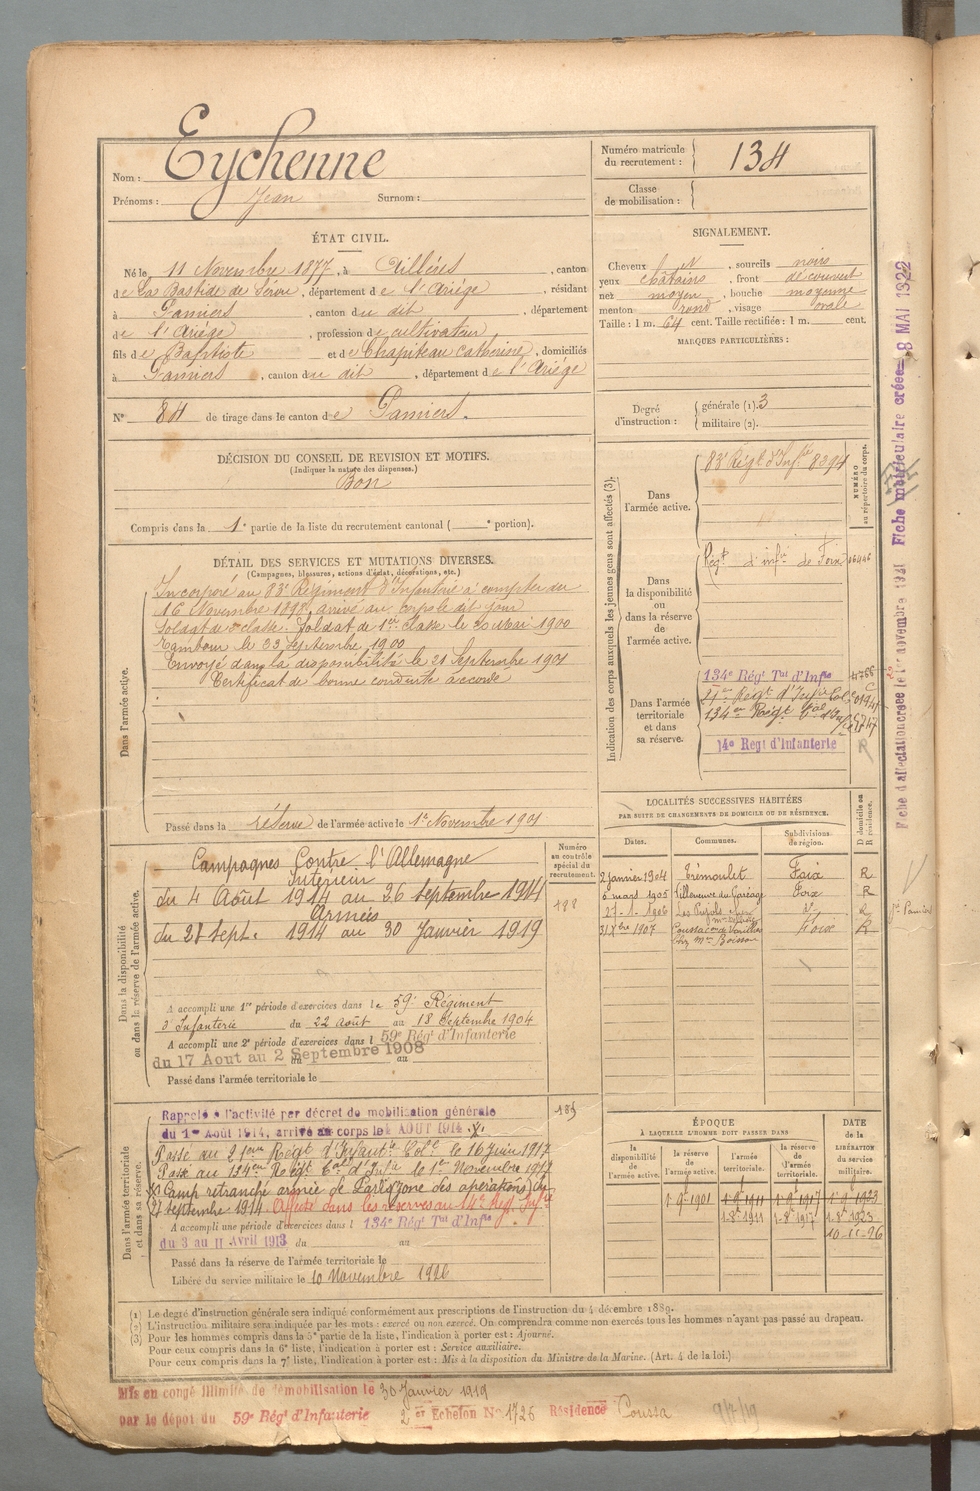 Nom : Eychenne
Prénoms : Jean Surnom :
Numéro matricule du recrutement : 134
Classe de mobilisation :
ÉTAT CIVIL.
Né le 11 Novembre 1877, à Aillères, canton
de La Bastide de Sérou, département de l'Ariège, résidant
à Pamiers, canton du dit, département
de l'Ariège, profession de cultivateur
fils de Baptiste et de Chapiteau Catherine, domiciliés
à Pamiers, canton du dit, département de l'Ariège
N° 84 de tirage dans le canton de Pamiers.
SIGNALEMENT.
Cheveux , sourcils noirs
yeux châtains, front découvert
nez moyen, bouche moyenne
menton rond, visage ovale
Taille : 1 m. 64 cent. Taille rectifiée : 1 m. cent.
MARQUES PARTICULIÈRES :
Degré d'instruction : générale (1). 3
militaire (2).
DÉCISION DU CONSEIL DE REVISION ET MOTIFS.
(Indiquer la nature des dispenses.)
Bon
Compris dans la 1e partie de la liste du recrutement cantonal ( e portion).
DÉTAIL DES SERVICES ET MUTATIONS DIVERSES.
(Campagnes, blessures, actions d'éclat, décorations, etc.)
Dans l'armée active.
Incorporé au 83e Régiment d'Infanterie à compter du
16 Novembre 1898, arrivé au corps le dit jour
Soldat de 2e classe. Soldat de 1re classe le 1900
Tambour le 23 Septembre 1900
Envoyé dans la disponibilité le 21 Septembre 1901
Certificat de bonne conduite accordé
Passé dans la réserve de l'armée active le 1er Novembre 1901
Indication des corps auxquels les jeunes gens sont affectés (3).
NUMÉRO au répertoire du corps.
Dans l'armée active. 83e Régt d'Infie 8394
Dans la disponibilité ou dans la réserve de l'armée active. Régt d'infie de Foix
Dans l'armée territoriale et dans sa réserve.
134e Régt Tal d'Infie
21e Régt d'Infie Col
134e Régt Tal d'Infie
14e Regt d'Infanterie
LOCALITÉS SUCCESSIVES HABITÉES
PAR SUITE DE CHANGEMENTS DE DOMICILE OU DE RÉSIDENCE.
Dates. Communes. Subdivisions de région. D domicile ou R résidence.
2 janvier 1904 Trémoulet Foix R
6 mars 1905 Villeneuve du Paréage Foix R
27-1-1906 Les Pujols
31 Xbre 1907 Coussa Foix R
chez Mr
Dans la disponibilité ou dans la réserve de l'armée active.
Numéro au contrôle spécial du recrutement.
Campagnes Contre l'Allemagne
Intérieur
du 4 Août 1914 au 26 Septembre 1914
Armées
du 27 Sept. 1914 au 30 Janvier 1919
A accompli une 1re période d'exercices dans le 59e Régiment
d'Infanterie du 22 août au 18 Septembre 1904
A accompli une 2e période d'exercices dans l 59e Régt d'Infanterie
du 17 Aout au 2 Septembre 1908
du au
Passé dans l'armée territoriale le
Dans l'armée territoriale et dans sa réserve.
Rappelé à l'activité par décret de mobilisation générale
du 1er Août 1914, arrivé au corps le 4 AOUT 1914 .X.
Passé au 21eme Régt d'Infante Colle le 16 Juin 1917
Passé au 134eme Régt Tal d'Infie le 1er Novembre 1917
(x) Camp retranché armée de Paris (zone des opérations) du
27 Septembre 1914. Affecté dans les réserves au 14e Rég. Infie
A accompli une période d'exercices dans l 134e Régt Tal d'Infie
du 3 au 11 Avril 1913 du au
Passé dans la réserve de l'armée territoriale le
Libéré du service militaire le 10 Novembre 1926
ÉPOQUE
À LAQUELLE L'HOMME DOIT PASSER DANS
DATE de la LIBÉRATION du service militaire.
la disponibilité de l'armée active. la réserve de l'armée active. l'armée territoriale. la réserve de l'armée territoriale.
1-9bre 1901 1-9bre 1911 1-9bre 1917 1-9-1923
1-8bre 1911 1-8bre 1917 1-8bre 1923
10-11-26
(1) Le degré d'instruction générale sera indiqué conformément aux prescriptions de l'instruction du 4 décembre 1889.
(2) L'instruction militaire sera indiquée par les mots : exercé ou non exercé. On comprendra comme non exercés tous les hommes n'ayant pas passé au drapeau.
(3) Pour les hommes compris dans la 5e partie de la liste, l'indication à porter est : Ajourné.
Pour ceux compris dans la 6e liste, l'indication à porter est : Service auxiliaire.
Pour ceux compris dans la 7e liste, l'indication à porter est : Mis à la disposition du Ministre de la Marine. (Art. 4 de la loi.)
Mis en congé illimité de démobilisation le 30 Janvier 1919
par le dépot du 59e Régt d'Infanterie 2e Echelon No 1726 Résidence Coussa
Fiche d'affectation créée le 1er novembre 1921 Fiche matriculaire créée 8 MAI 1922